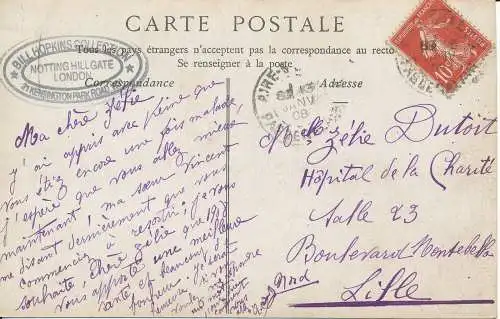 CARTE POSTALE
Tous les pays étrangers n'acceptent pas la correspondance au recto
Se renseigner à la poste
BILL HOPKINS COLLECTION
NOTTING HILLGATE
LONDON
KENSINGTON PARK ROAD
Correspondance
Adresse
Ma chère Zélie
J'ai appris avec peine que
vous étiez encore une fois malade,
j'espère que vous allez mieux
maintenant, ma sœur Vincent
me disant dernièrement que vous
commenciez à ressortir; je vous
souhaite, chère Zélie que 1908
vous apporte une meilleure
santé et beaucoup de
bonheur.
Melle Zélie Dutoit
Hôpital de la Charité
Salle 23
Boulevard Montebello
Lille
Nord
JANV
08
10